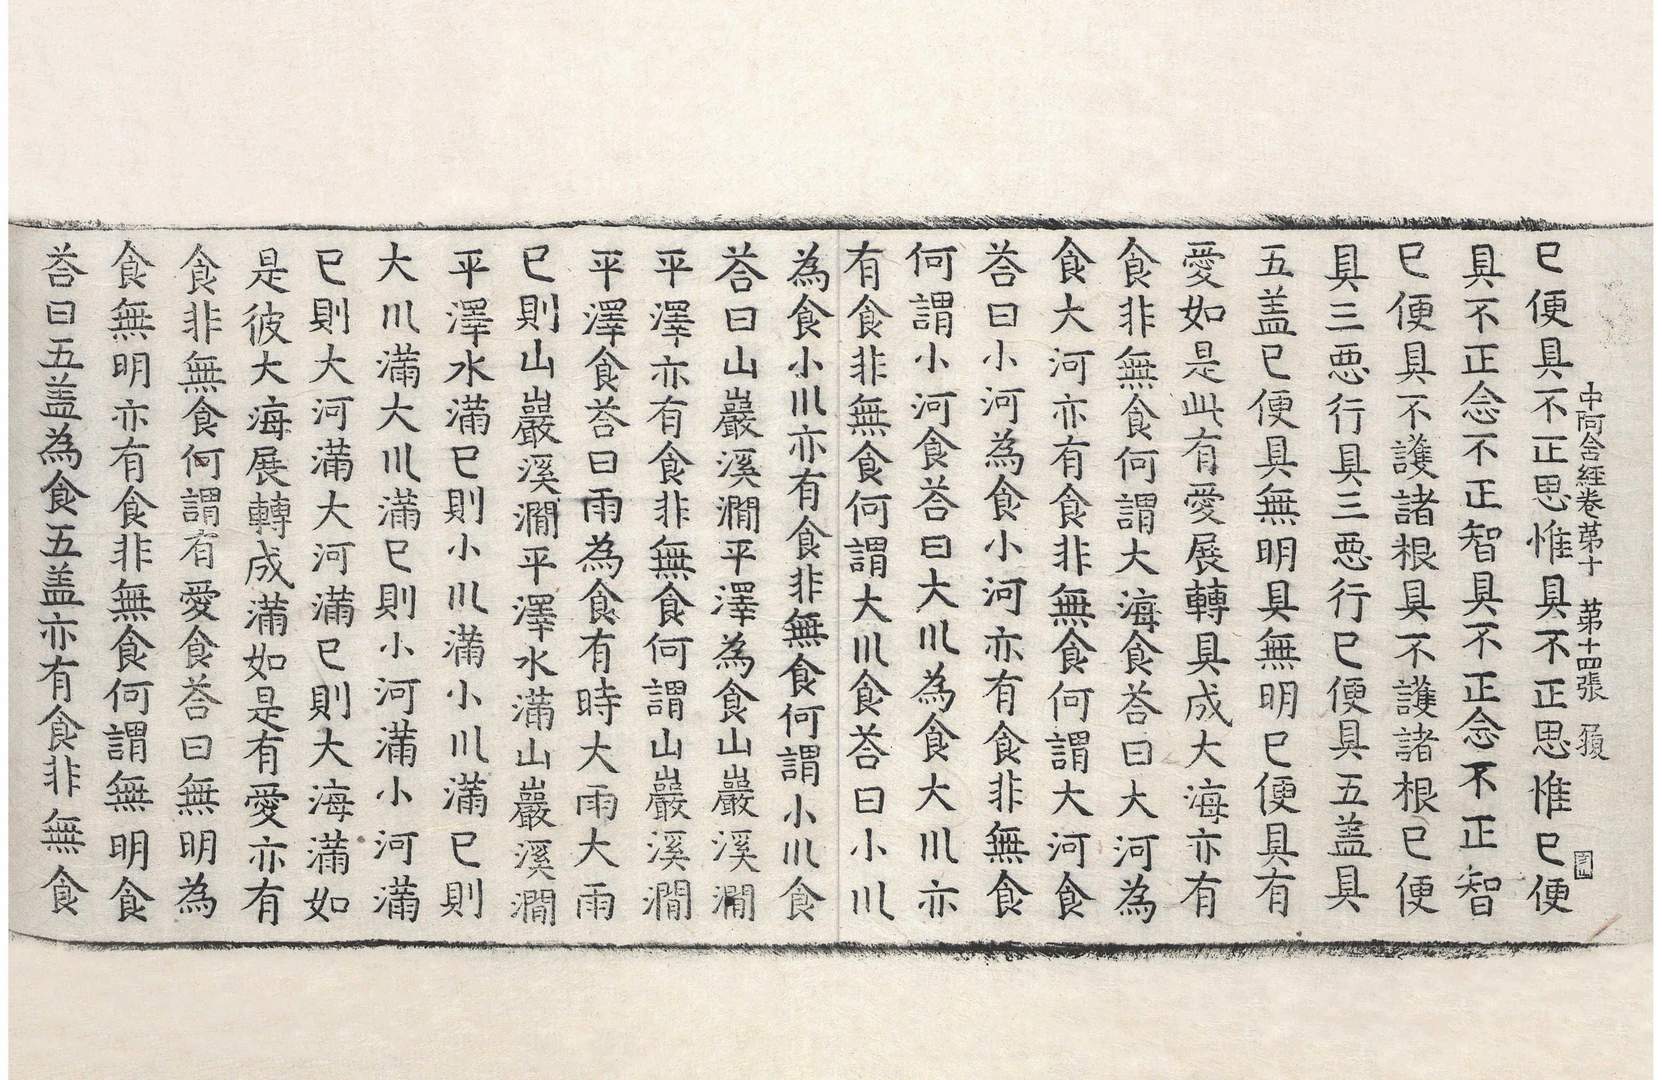 中阿含経卷苐十 苐十四張 籲
已便具不正思惟具不正思惟已便
具不正念不正智具不正念不正智
已便具不護諸根具不護諸根已便
具三惡行具三惡行已便具五盖具
五盖已便具無明具無明已便具有
愛如是此有愛展轉具成大海亦有
食非無食何謂大海食荅曰大河為
食大河亦有食非無食何謂大河食
荅曰小河為食小河亦有食非無食
何謂小河食荅曰大川為食大川亦
有食非無食何謂大川食荅曰小川
為食小川亦有食非無食何謂小川食
荅曰山巖溪澗平澤為食山巖溪澗
平澤亦有食非無食何謂山巖溪澗
平澤食荅曰雨為食有時大雨大雨
已則山巖溪澗平澤水滿山巖溪澗
平澤水滿已則小川滿小川滿已則
大川滿大川滿已則小河滿小河滿
已則大河滿大河滿已則大海滿如
是彼大海展轉成滿如是有愛亦有
食非無食何謂有愛食荅曰無明為
食無明亦有食非無食何謂無明食
荅曰五盖為食五盖亦有食非無食